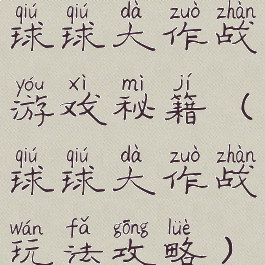 qiú qiú dà zuò zhàn
球球大作战
yóu xì mì jí
游戏秘籍（
qiú qiú dà zuò zhàn
球球大作战
wán fǎ gōng lüè
玩法攻略）